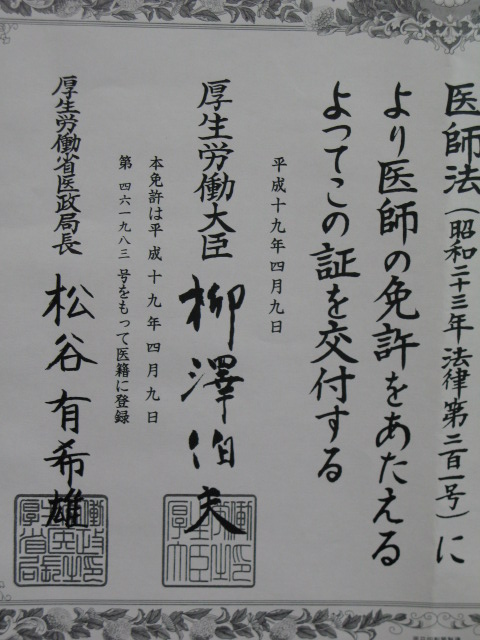 医師法（昭和二十三年法律第二百一号）に
より医師の免許をあたえる
よつてこの証を交付する
平成十九年四月九日
厚生労働大臣 柳澤伯夫
本免許は平成十九年四月九日
第 四六一九八三 号をもって医籍に登録
厚生労働省医政局長 松谷有希雄